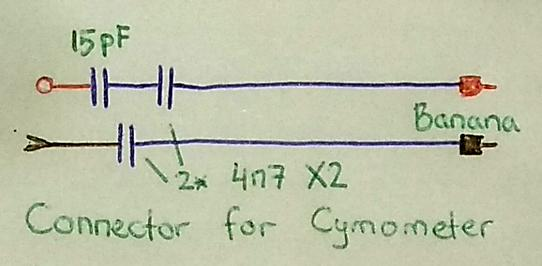 15pF
Banana
2x 4n7 X2
Connector for Cymometer